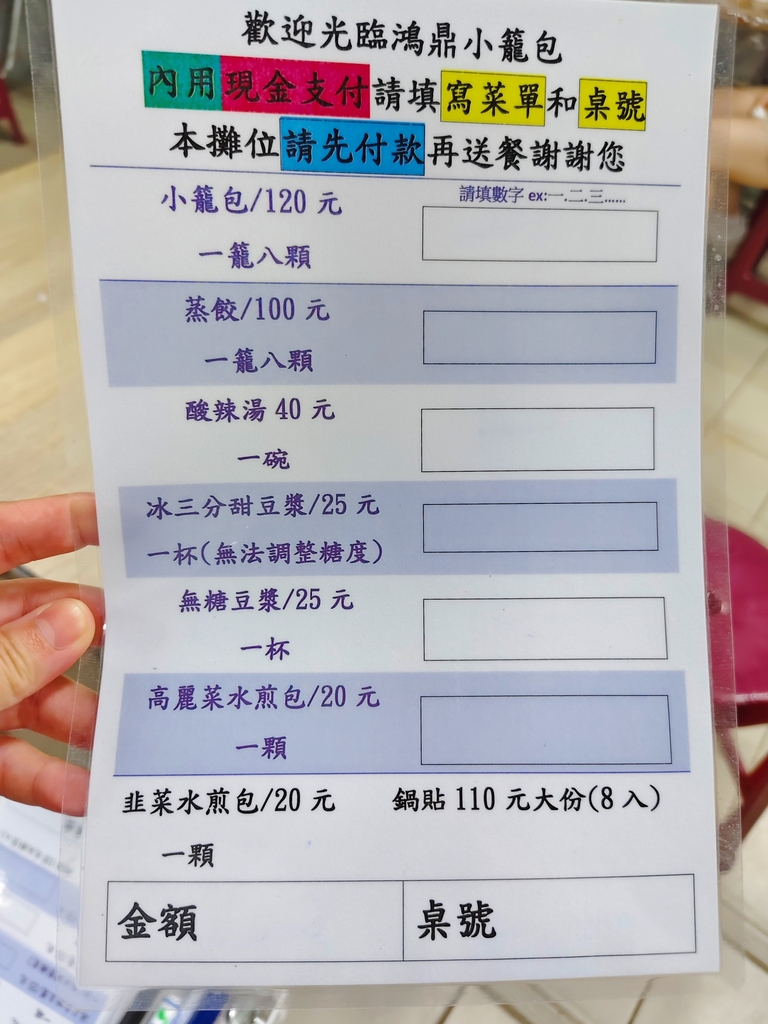 歡迎光臨鴻鼎小籠包
內用現金支付請填寫菜單和桌號
本攤位請先付款再送餐謝謝您
小籠包/120 元
請填數字 ex:一.二.三......
一籠八顆
蒸餃/100 元
一籠八顆
酸辣湯 40 元
一碗
冰三分甜豆漿/25 元
一杯(無法調整糖度)
無糖豆漿/25 元
一杯
高麗菜水煎包/20 元
一顆
韭菜水煎包/20 元 鍋貼 110 元大份(8 入)
一顆
金額 桌號